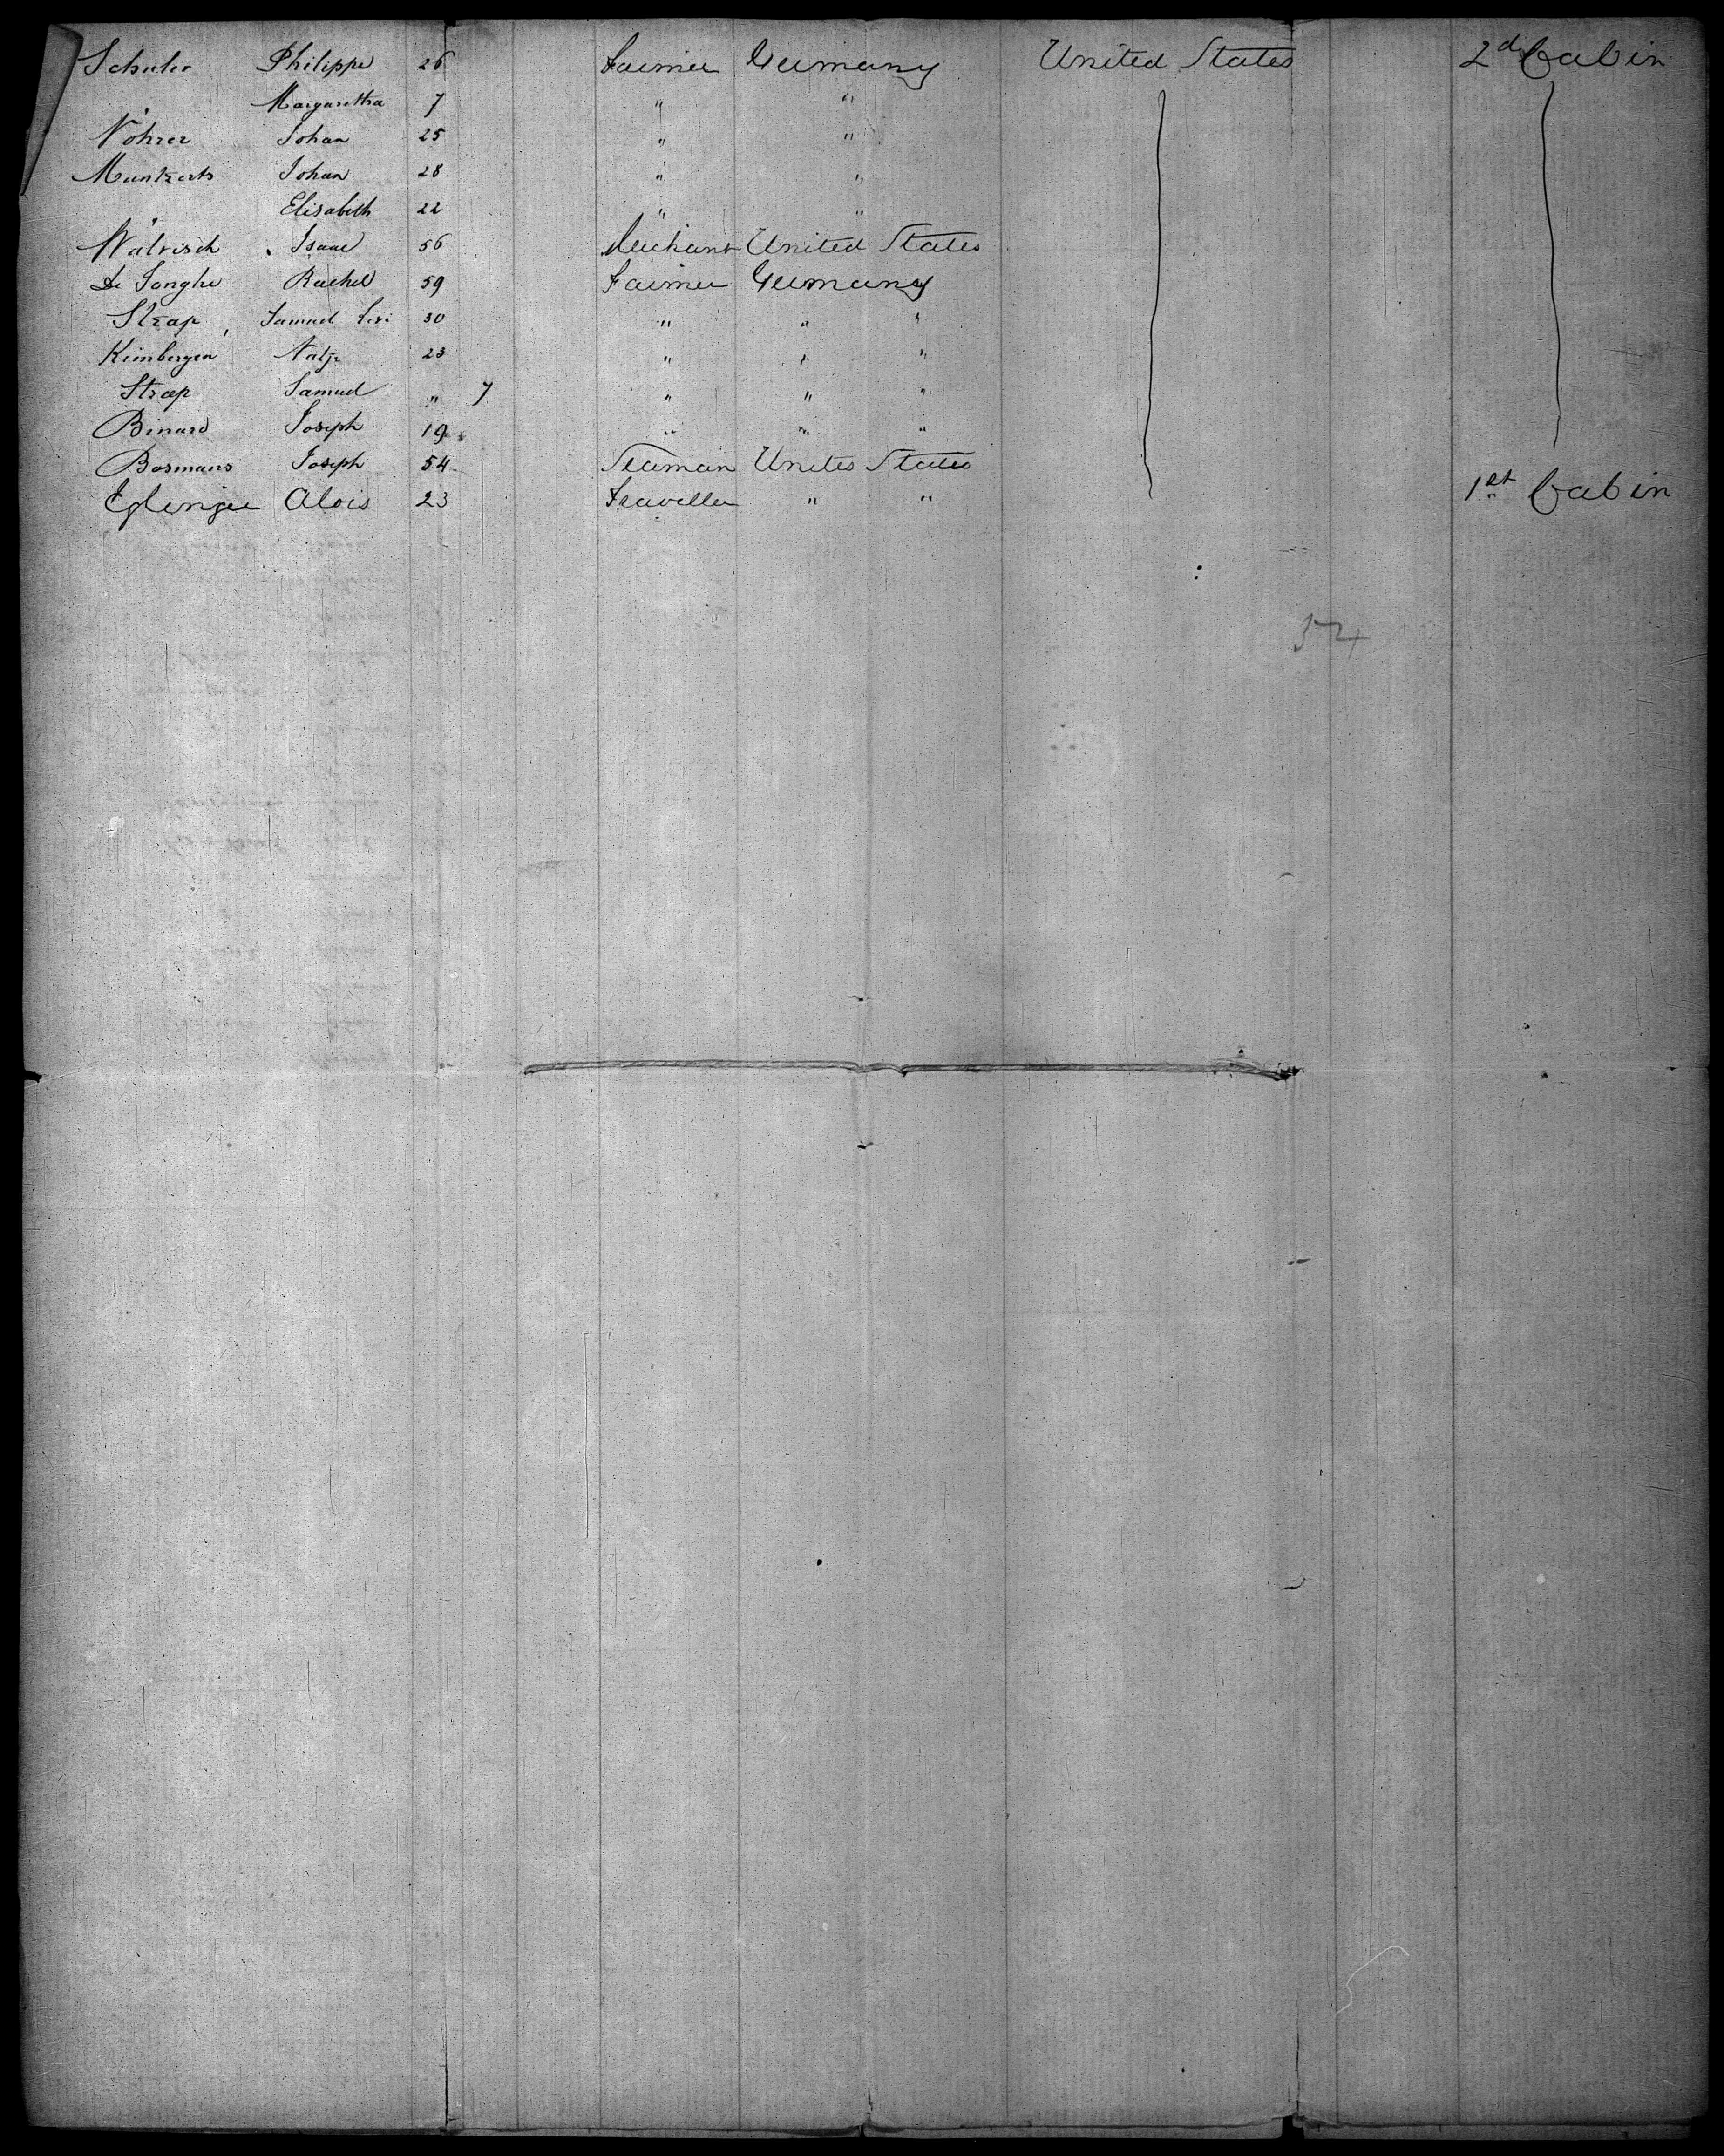 Schuler Philippe 26 Farmer Germany United States 2d Cabin
" Margarettha 7 " "
Nöhrer Johan 25 " "
Muntzerts Johan 28 " "
" Elisabeth 22 " "
Walvisch Isaac 56 Merchant United States
De Jonghe Rachel 59 Farmer Germany
Strap Samuel Levi 30 " " "
Kimbergen Natje 23 " " "
Strap Samuel " 7 " " "
Binard Joseph 19 " " "
Bosmans Joseph 54 Seaman Unites States
Alois 23 Traveller " " 1st Cabin
54